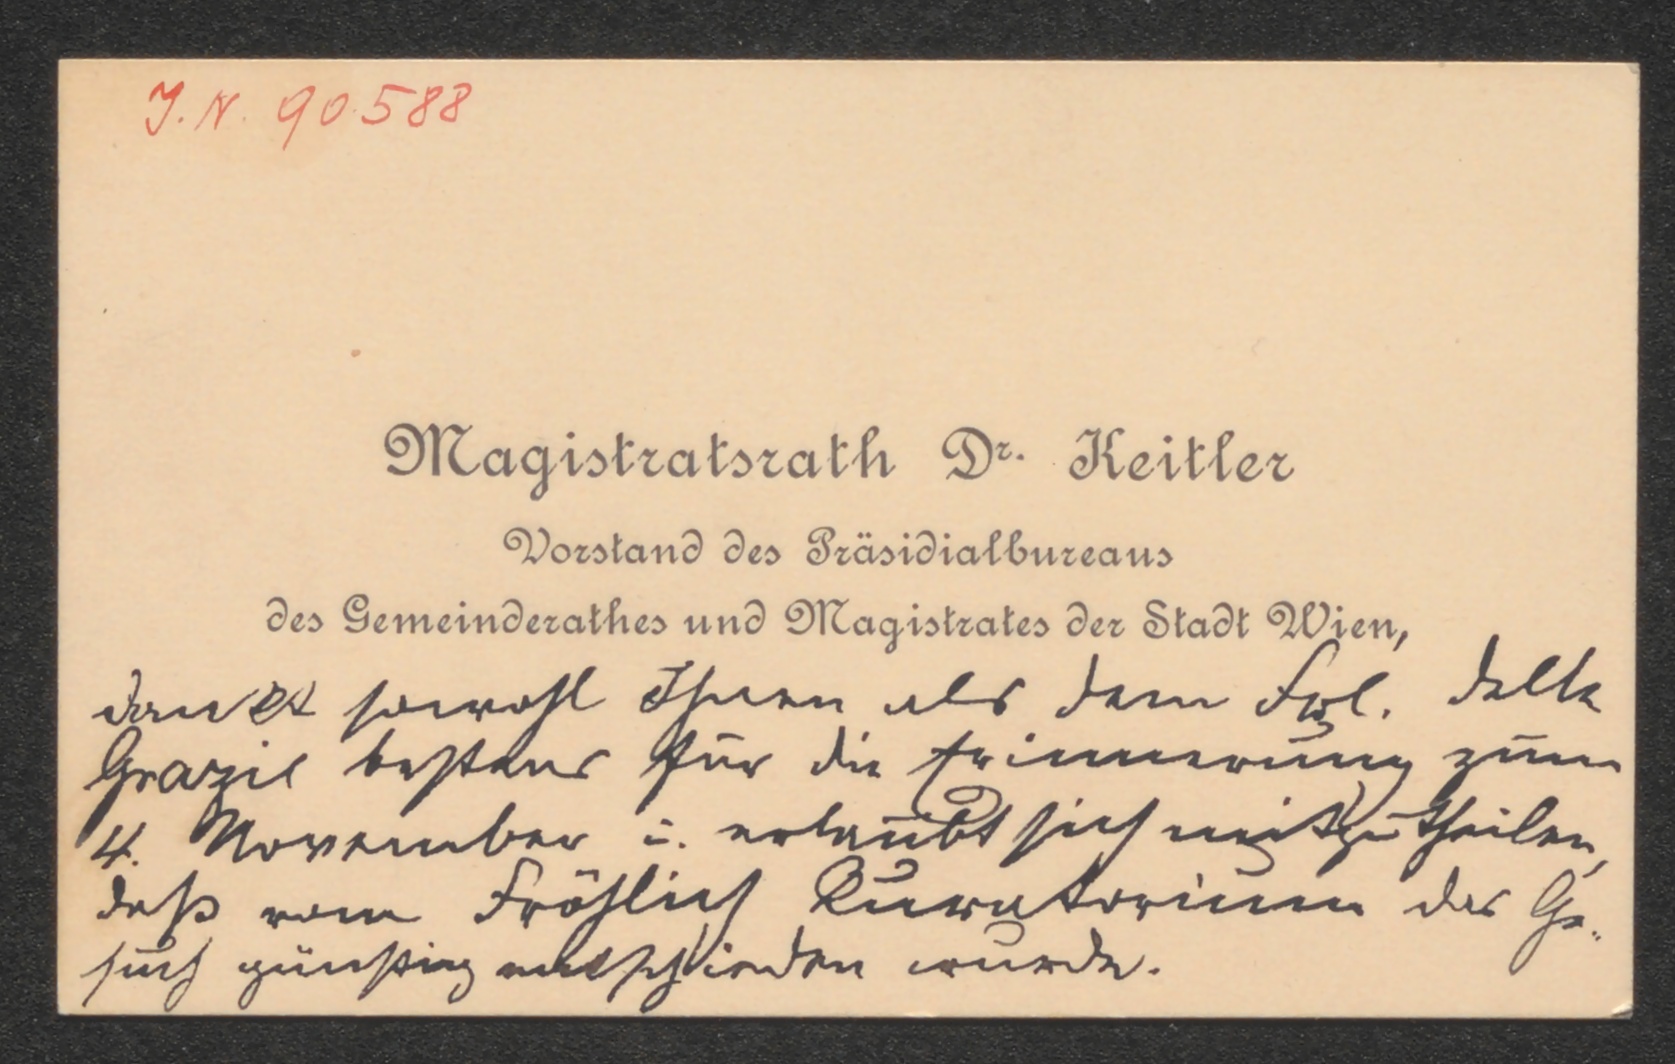 J.N. 90.588
Magistratsrath Dr. Keitler
Vorstand des Präsidialbureaus
des Gemeinderathes und Magistrates der Stadt Wien,
dankt sowohl Ihnen als dem Frl. delle
Grazie bestens für die Erinnerung zum
4. November u. erlaubt sich mitzutheilen,
daß vom Fröhlich Kuratorium das Ge-
such günstig entschieden wurde.